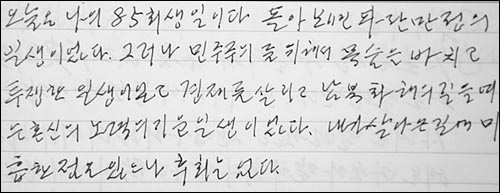 오늘은 나의 85회 생일이다. 돌아보면 파란만장의
일생이었다. 그러나 민주주의를 위해서 목숨을 바치고
투쟁한 일생이었고 경제를 살리고 남북화해의 길을 여
는 혼신의 노력의 기간 일생이었다. 내가 살아온 길에 미
흡한 점도 있으나 후회는 없다.